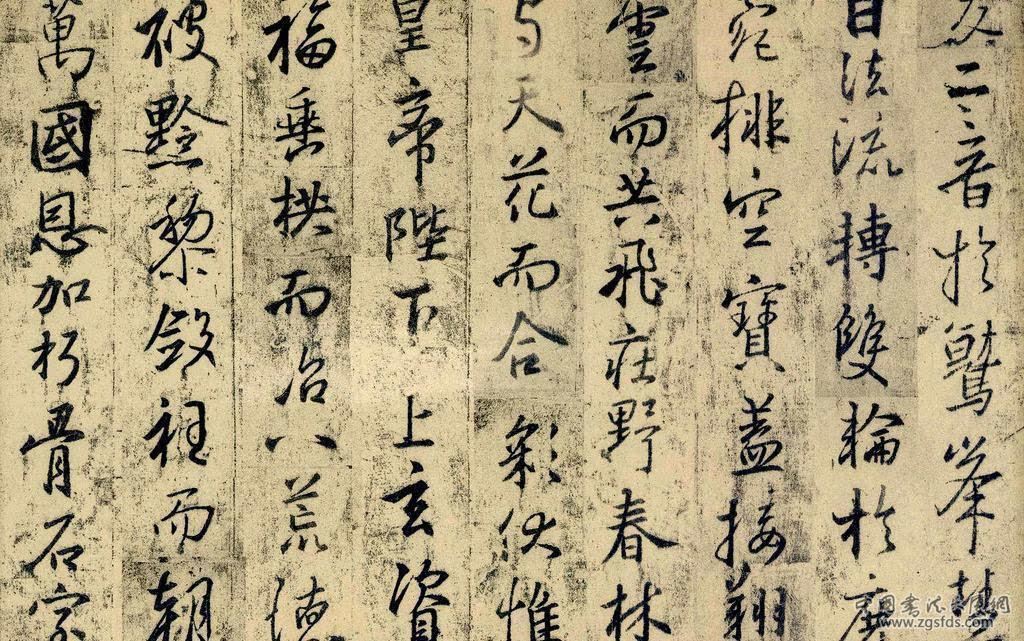 交二音於鷲峯慧
日法流轉雙輪於鹿
菀排空寶蓋接翔
雲而共飛莊野春林
與天花而合彩伏惟
皇帝陛下上玄資
福垂拱而治八荒德
被黔黎斂衽而朝
萬國恩加朽骨石室
www.zgsfds.com